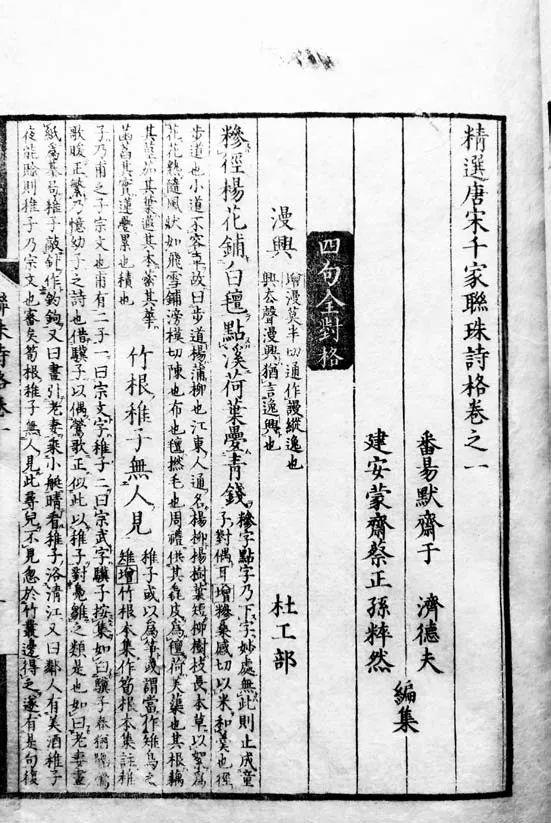 精選唐宋千家聯珠詩格卷之一
番昜默齋于 濟德夫
建安蒙齋蔡正孫粹然
編集
四句全對格
漫興
增漫莫半切通作謾縱逸也
興去聲漫興猶言逸興也
杜工部
糝徑楊花鋪白氊點溪荷葉疊青錢
糝字點字乃下字妙處無此則止成童
子對偶耳增糝桑感切以米和羹也徑
步道也小道不容車故曰步道楊蒲柳也江東人通名楊柳楊樹葉短柳樹枝長本草以絮爲
花花熟隨風狀如飛雪鋪滂模切陳也布也氊撚毛也周禮供其毳皮爲氊荷芙蕖也其根藕
其莖茄其葉蕸其本蔤其華
菡萏其實蓮疊累也積也
竹根稚子無人見
稚子或以爲筍或謂當作雉烏之
雉增竹根本集作筍根本集註稚
子乃甫之子宗文也甫有二子一曰宗文字稚子二曰宗武字驥子按集如曰驥子春猶隔鶯
歌暖正繁乃憶幼子之詩也借驥子以偶鶯歌正似此以稚子對鳧雛之類是也如曰老妻畫
紙爲棊局稚子敲針作釣鉤又曰晝引老妻乘小艇晴看稚子浴清江又曰鄰人有美酒稚子
夜能賒則稚子乃宗文也審矣筍根稚子無人見此尋兒不見忽於竹叢邊得之遂有是句復
聯珠詩格卷一